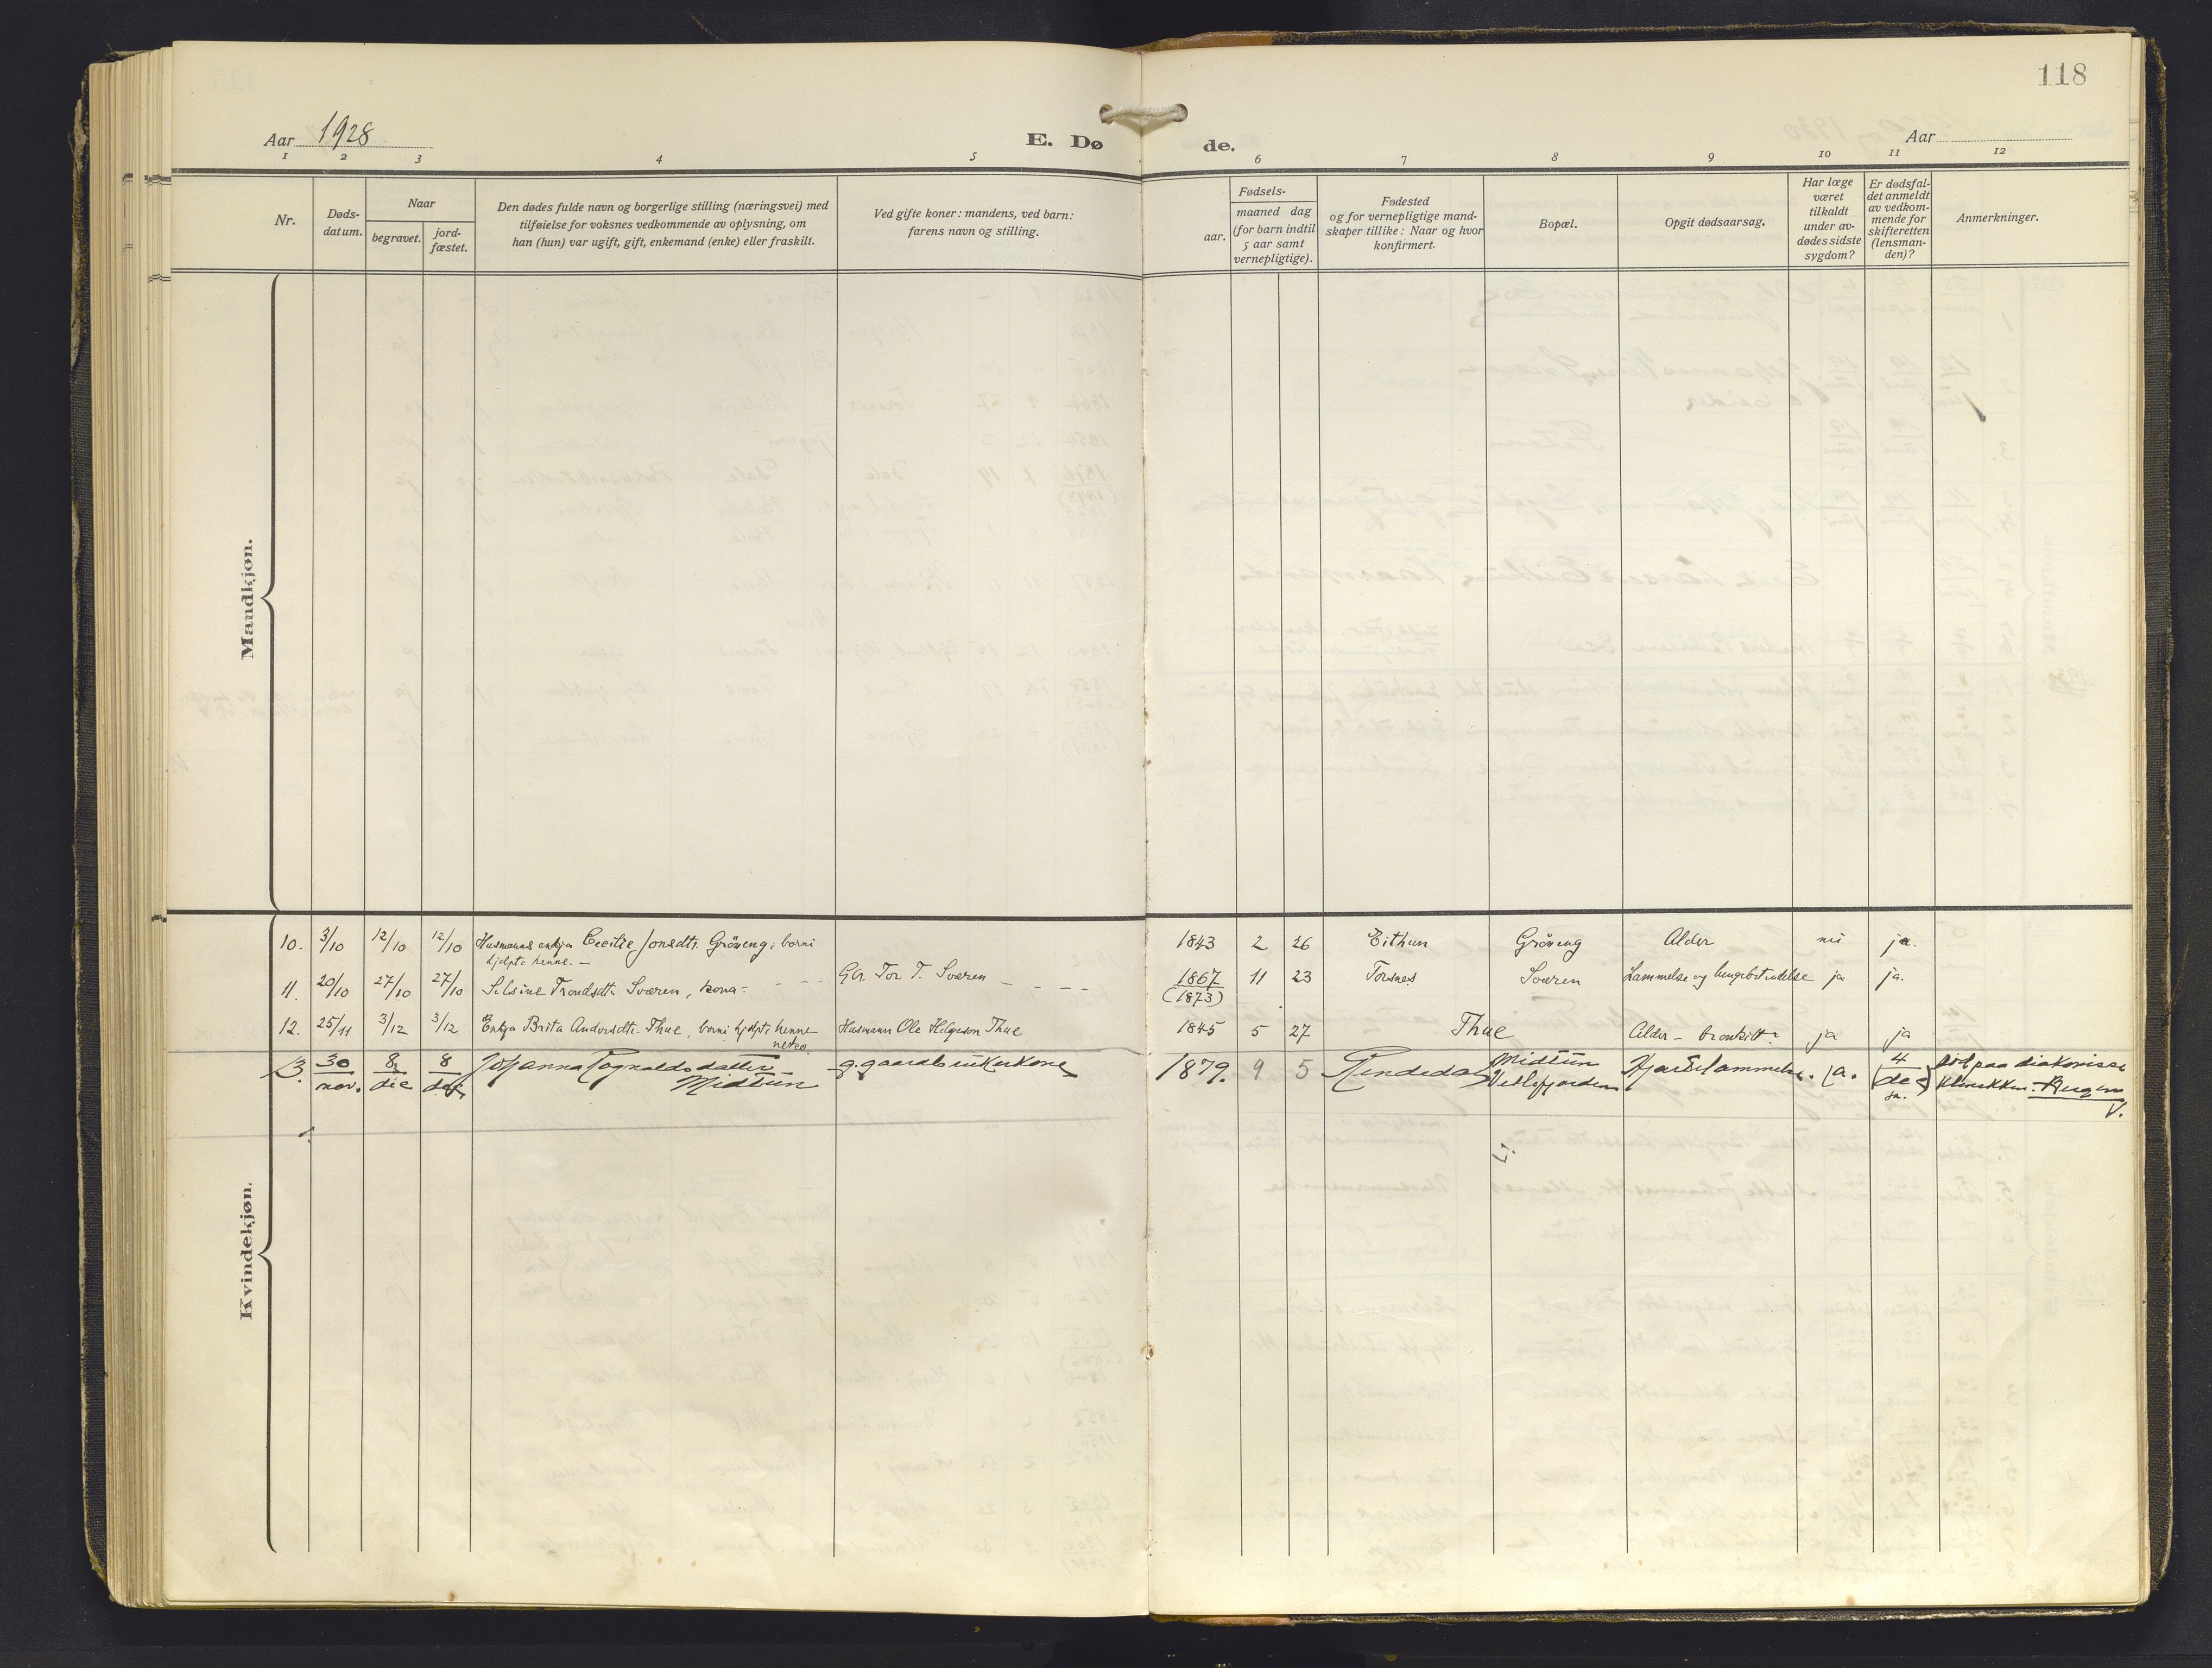 118
Aar 1928
E. Dø
de.
Aar
1 2 3 4 5 6 7 8 9 10 11 12
Nr.
Døds-
datum.
Naar
begravet.
jord-
fæstet.
Den dødes fulde navn og borgerlige stilling (næringsvei) med
tilføielse for voksnes vedkommende av oplysning, om
han (hun) var ugift, gift, enkemand (enke) eller fraskilt.
Ved gifte koner: mandens, ved barn:
farens navn og stilling.
Fødsels-
aar.
maaned dag
(for barn indtil
5 aar samt
vernepligtige).
Fødested
og for vernepligtige mand-
skaper tillike: Naar og hvor
konfirmert.
Bopæl.
Opgit dødsaarsag.
Har læge
været
tilkaldt
under av-
dødes sidste
sygdom?
Er dødsfal-
det anmeldt
av vedkom-
mende for
skifteretten
(lensman-
den)?
Anmerkninger.
Mandkjøn.
Kvindekjøn.
10. 3/10 12/10 12/10 Husmanns enkja Cecilie Jonsdtr. Gröneng, borni 1843 2 26 Eithun Gröneng Alder nei ja.
hjelpte henne. —
11. 20/10 27/10 27/10 Silsine Trondsdtr. Sværen, kona - Gbr. Tor T. Sværen 1867 11 23 Torsnes Sværen Lammelse og lungebetendelse ja ja.
(1873)
12. 25/11 3/12 3/12 Enkja Brita Andersdtr. Thue, borni hjelpte henne Husmann Ole Helgeson Thue 1845 5 27 Thue Alder - bronkitt ja ja
13. 30 8 8 Johanna Rognaldsdatter g. gaardbrukerkone 1879. 9 5 Rendedal Midtun Hjertelammelse. ja. 4 död paa diakonisse
nov. dec Midtun Vetlefjorden dec klinikken. Bergen
ja. V.